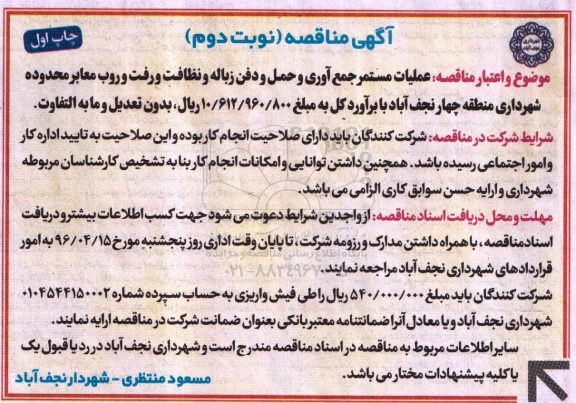 آگهی مناقصه (نوبت دوم)
چاپ اول
شهرداری نجف آباد
موضوع و اعتبار مناقصه: عملیات مستمر جمع آوری و حمل و دفن زباله و نظافت و رفت و روب معابر محدوده
شهرداری منطقه چهار نجف آباد با برآورد کل به مبلغ ۱۰/۶۱۲/۹۶۰/۸۰۰ ریال، بدون تعدیل و ما به التفاوت.
شرایط شرکت در مناقصه: شرکت کنندگان باید دارای صلاحیت انجام کار بوده و این صلاحیت به تایید اداره کار
و امور اجتماعی رسیده باشد. همچنین داشتن توانایی و امکانات انجام کار بنا به تشخیص کارشناسان مربوطه
شهرداری و ارایه حسن سوابق کاری الزامی می باشد.
مهلت و محل دریافت اسناد مناقصه: از واجدین شرایط دعوت می شود جهت کسب اطلاعات بیشتر و دریافت
اسناد مناقصه، با همراه داشتن مدارک و رزومه شرکت، تا پایان وقت اداری روز پنجشنبه مورخ ۹۶/۰۴/۱۵ به امور
قراردادهای شهرداری نجف آباد مراجعه نمایند.
شرکت کنندگان باید مبلغ ۵۴۰/۰۰۰/۰۰۰ ریال را طی فیش واریزی به حساب سپرده شماره ۰۱۰۴۵۴۴۱۵۰۰۰۲
شهرداری نجف آباد و یا معادل آنرا ضمانتنامه معتبر بانکی بعنوان ضمانت شرکت در مناقصه ارایه نمایند.
سایر اطلاعات مربوط به مناقصه در اسناد مناقصه مندرج است و شهرداری نجف آباد در رد یا قبول یک
یا کلیه پیشنهادات مختار می باشد.
مسعود منتظری - شهردار نجف آباد